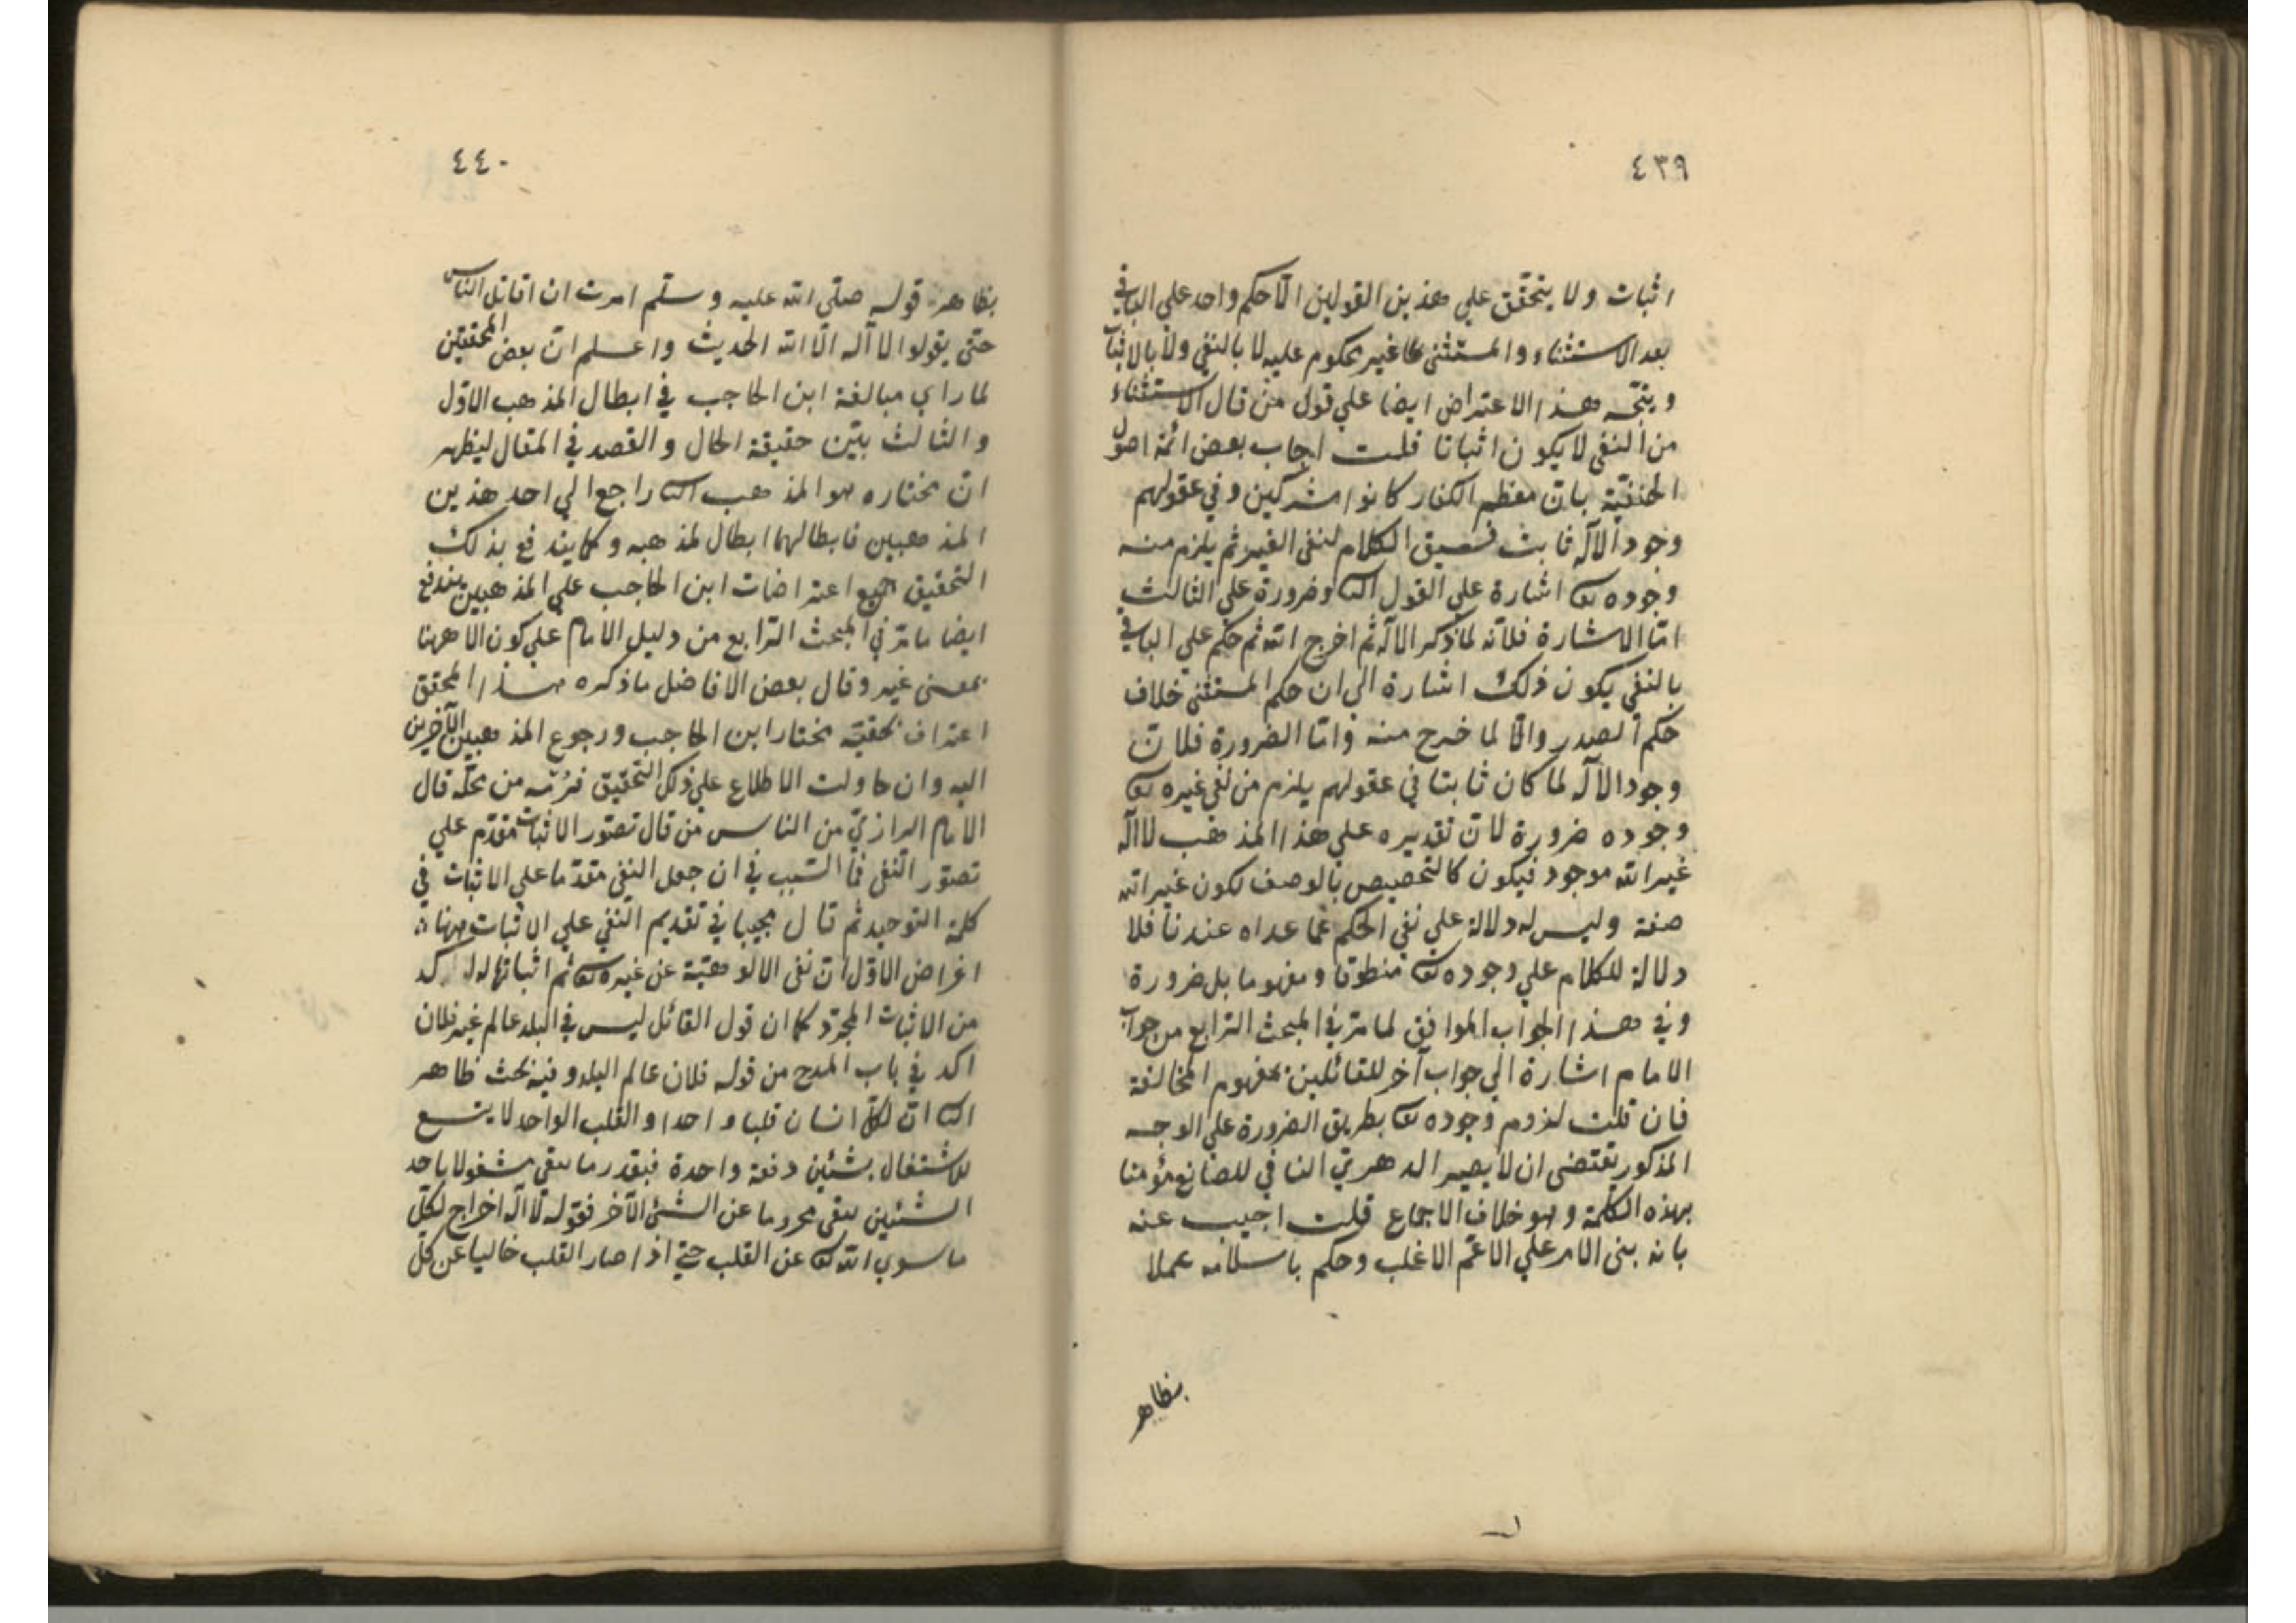 ٤٣٩
اثبات ولا يتحقق علي هذين القولين الّا حكم واحد علي الباقي
بعد الاستثناء والمستثنى كا غير محكوم عليه لا بالنفي ولا بالاثبات
ويتجه هذا الاعتراض ايضا علي قول من قال الاستثناء
من النفي لا يكون اثباتا قلت اجاب بعض ائمة اصول
الحنفيّة بانّ معظم الكفار كانوا مشركين وفي عقولهم
وجود الآله ثابت فسيق الكلام لنفي الغير ثم يلزم منه
وجوده تعا اشارة علي القول الثا وضرورة علي الثالث
امّا الاشارة فلانّه لما ذكر الآله ثم اخرج الله ثم حكم علي الباقي
بالنفي يكون ذلك اشارة الي ان حكم المستثنى خلاف
حكم الصدر والّا لما خرج منه وامّا الضرورة فلانّ
وجود الآله لما كان ثابتا في عقولهم يلزم من نفي غيره تعا
وجوده ضرورة لانّ تقديره علي هذا المذهب لا اله
غير الله موجود فيكون كالتخصيص بالوصف لكون غير الله
صفة وليس له دلالة علي نفي الحكم عمّا عداه عندنا فلا
دلالة للكلام علي وجوده تعا منطوقا ومفهوما بل ضرورة
وفي هذا الجواب الموافق لما مرّ في المبحث الرّابع من جواب
الامام اشارة الي جواب آخر للقائلين بمفهوم المخالفة
فان قلت لزوم وجوده تعا بطريق الضرورة علي الوجه
المذكور يقتضى ان لا يصير الدهريّ النافي للصانع مؤمنا
بهذه الكلمة وهو خلاف الاجماع قلت اجيب عنه
بانه بني الامر علي الاعمّ الاغلب وحكم باسلامه عملا
بظاهر
٤٤٠
بظاهر قوله صلّى الله عليه وسلّم امرت ان اقاتل الناس
حتّى يقولوا لا آله الّا الله الحديث واعلم انّ بعض المحققين
لما راي مبالغة ابن الحاجب في ابطال المذهب الاوّل
والثالث بيّن حقيقة الحال والقصد في المقال ليظهر
انّ مختاره هو المذهب الثا راجعا الي احد هذين
المذهبين فابطالهما ابطال لمذهبه وكما يندفع بذلك
التحقيق جميع اعتراضات ابن الحاجب علي المذهبين يندفع
ايضا ما مرّ في المبحث الرّابع من دليل الامام علي كون الا ههنا
بمعنى غير وقال بعض الافاضل ما ذكره هذا المحقق
اعتراف بحقيّة مختار ابن الحاجب ورجوع المذهبين الآخرين
اليه وان حاولت الاطلاع علي ذلك التحقيق فرُمه من محلّه قال
الامام الرازيّ من الناس من قال تصوّر الاثبات مقدّم علي
تصوّر النفي فما السّبب في ان جعل النفي مقدّما علي الاثبات في
كلمة التوحيد ثم قال مجيبا في تقديم النفي علي الاثبات ههنا
اغراض الاوّل انّ نفى الالوهيّة عن غيره تعا ثم اثباتها له اكد
من الاثبات المجرّد كما ان قول القائل ليس في البلد عالم غير فلان
اكد في باب المدح من قوله فلان عالم البلد وفيه بحث ظاهر
الثا انّ لكلّ انسان قلبا واحدا والقلب الواحد لا يتسع
للاشتغال بشئين دفعة واحدة فبقدر ما يبقى مشغولا باحد
الشئين يبقى محروما عن الشئ الآخر فقوله لا اله اخراج لكلّ
ما سوي الله تعا عن القلب حتّي اذا صار القلب خاليا عن كلّ